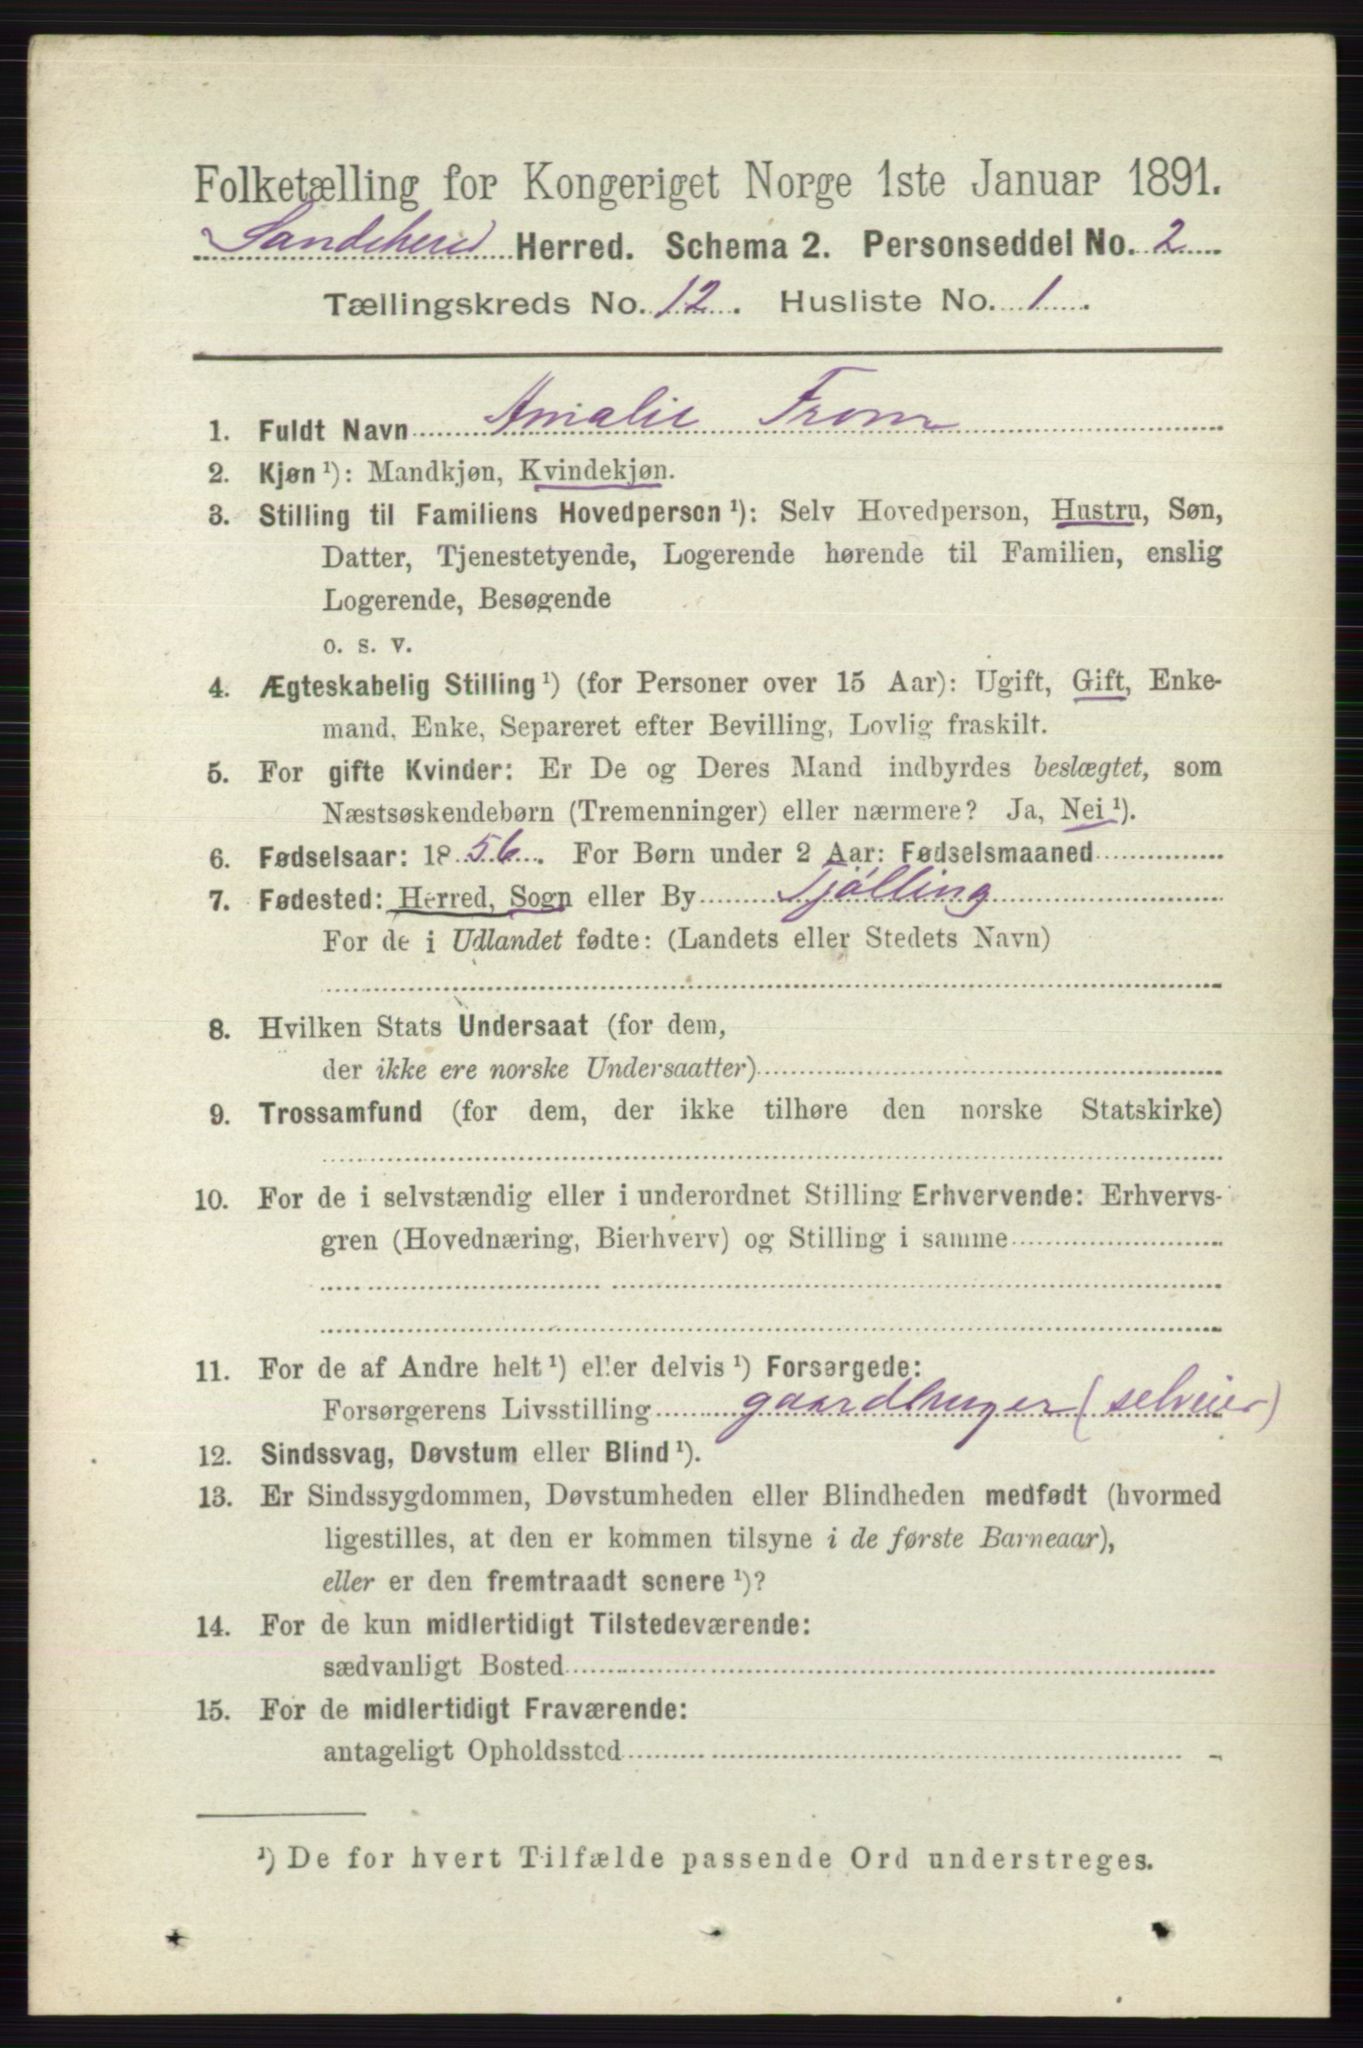 Folketælling for Kongeriget Norge 1ste Januar 1891.
Sandeherred Herred. Schema 2. Personseddel No. 2
Tællingskreds No. 12. Husliste No. 1.
1. Fuldt Navn Amalie Trom
2. Kjøn¹): Mandkjøn, Kvindekjøn.
3. Stilling til Familiens Hovedperson¹): Selv Hovedperson, Hustru, Søn,
Datter, Tjenestetyende, Logerende hørende til Familien, enslig
Logerende, Besøgende
o. s. v.
4. Ægteskabelig Stilling¹) (for Personer over 15 Aar): Ugift, Gift, Enke-
mand, Enke, Separeret efter Bevilling, Lovlig fraskilt.
5. For gifte Kvinder: Er De og Deres Mand indbyrdes beslægtet, som
Næstsøskendebørn (Tremenninger) eller nærmere? Ja, Nei¹).
6. Fødselsaar: 1856. For Børn under 2 Aar: Fødselsmaaned
7. Fødested: Herred, Sogn eller By Tjølling
For de i Udlandet fødte: (Landets eller Stedets Navn)
8. Hvilken Stats Undersaat (for dem,
der ikke ere norske Undersaatter)
9. Trossamfund (for dem, der ikke tilhøre den norske Statskirke)
10. For de i selvstændig eller i underordnet Stilling Erhvervende: Erhvervs-
gren (Hovednæring, Bierhverv) og Stilling i samme
11. For de af Andre helt¹) eller delvis¹) Forsørgede:
Forsørgerens Livsstilling gaardbruger (selveier)
12. Sindssvag, Døvstum eller Blind¹).
13. Er Sindssygdommen, Døvstumheden eller Blindheden medfødt (hvormed
ligestilles, at den er kommen tilsyne i de første Barneaar),
eller er den fremtraadt senere¹)?
14. For de kun midlertidigt Tilstedeværende:
sædvanligt Bosted
15. For de midlertidigt Fraværende:
antageligt Opholdssted
¹) De for hvert Tilfælde passende Ord understreges.